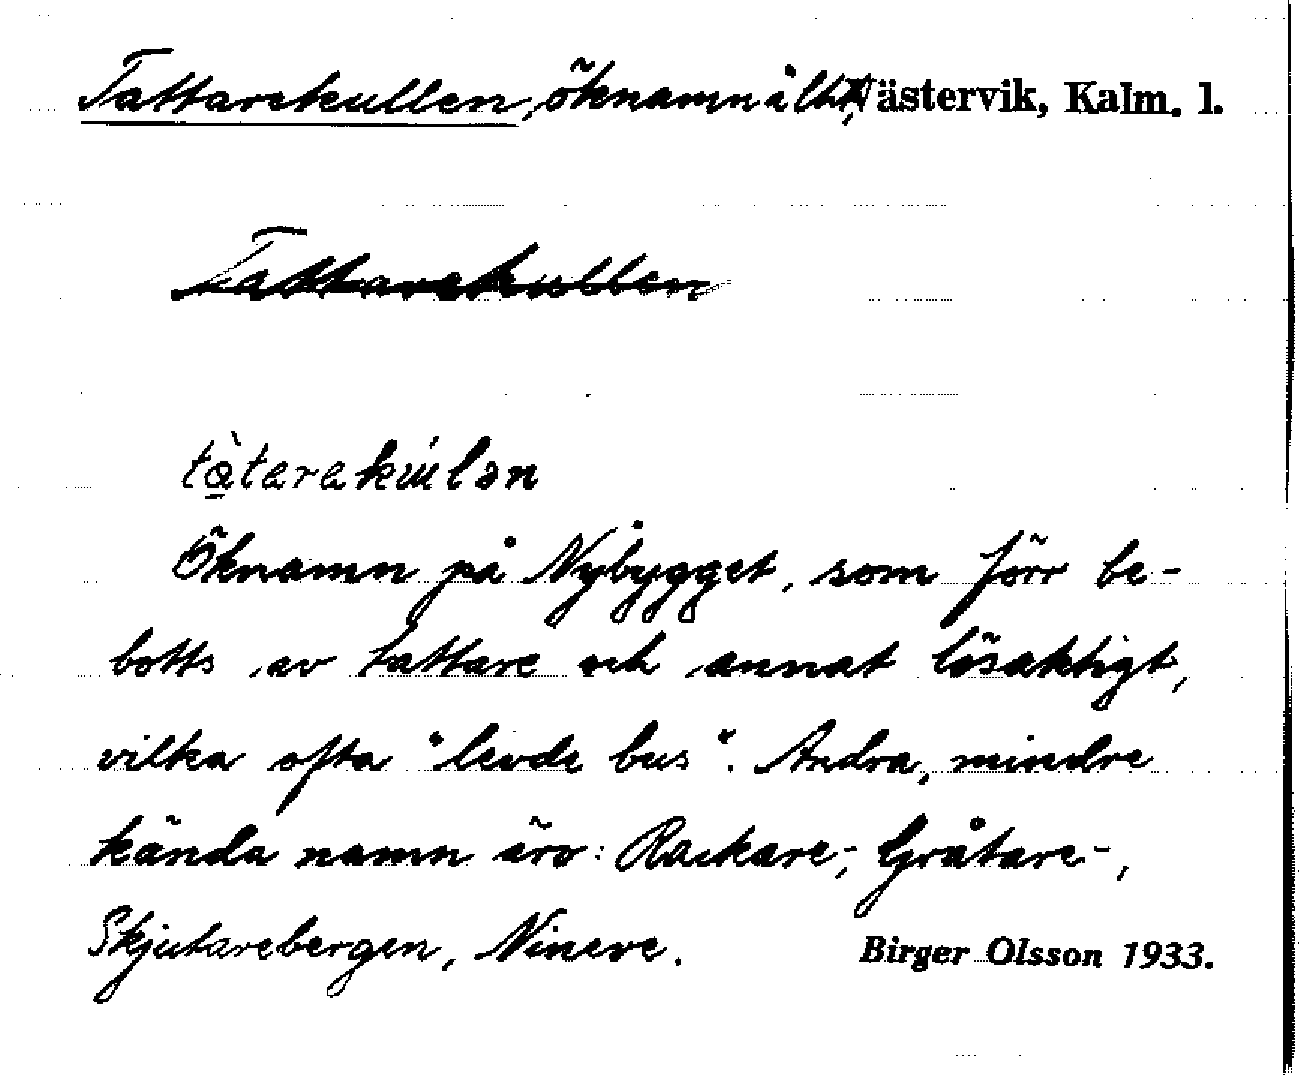 Tattarekullen, öknamn å lht, Västervik, Kalm. l.
Tattarekullen
tàtarakúlən
Öknamn på Nybygget, som förr be-
botts av tattare och annat lösaktigt,
vilka ofta "levde bus". Andra, mindre
kända namn äro: Rackare-, Gråtare-,
Skjutarebergen, Nineve.
Birger Olsson 1933.